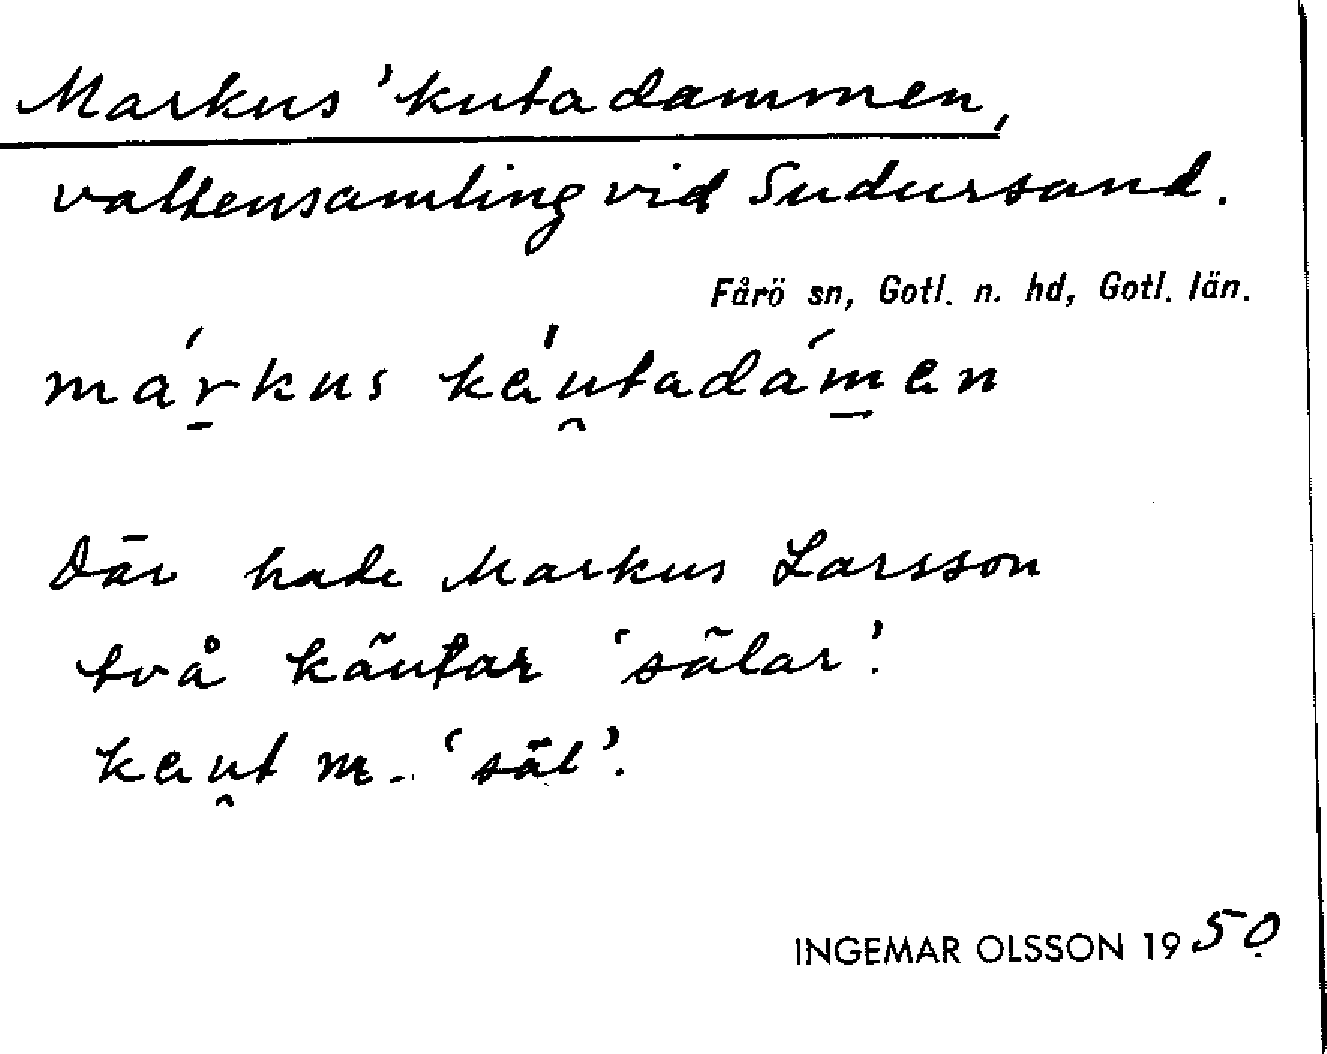 Markus 'kutadammen,
vattensamling vid Sudursand.
Fårö sn, Gotl. n. hd, Gotl. län.
már̠kus kéu̯tadám̠en
Där hade Markus Larsson
två käutar 'sälar'.
keu̯t m. 'säl'.
INGEMAR OLSSON 1950